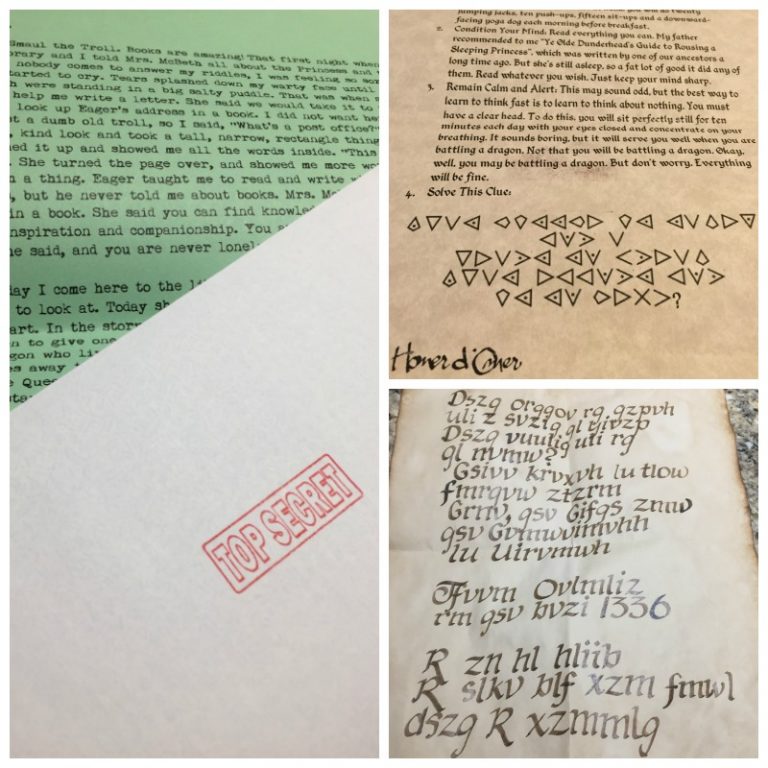 Smaul the Troll. Books are amazing! That first night when
and I told Mrs. McBeth all about the Princess and
nobody comes to answer my riddles, I was feeling so
to cry. Tears splashed down my warty face until
were standing in a big salty puddle. That was when
help me write a letter. She said we would take it to
look up Eager's address in a book. I did not want
a dumb old troll, so I said, "What's a post office?"
kind look and took a tall, narrow, rectangle thing
it up and showed me all the words inside. "This
She turned the page over, and showed me more
a thing. Eager taught me to read and write
but he never told me about books. Mrs.
in a book. She said you can find
inspiration and companionship. You
said, and you are never
day I come here to the
to look at. Today
In the
to give one
who
away
TOP SECRET
jumping jacks, ten push-ups, fifteen sit-ups and a downward-
facing yoga dog each morning before breakfast.
2. Condition Your Mind: Read everything you can. My father
recommended to me "Ye Olde Dunderhead's Guide to Rousing a
Sleeping Princess", which was written by one of our ancestors a
long time ago. But she's still asleep, so a fat lot of good it did any of
them. Read whatever you wish. Just keep your mind sharp.
3. Remain Calm and Alert: This may sound odd, but the best way to
learn to think fast is to learn to think about nothing. You must
have a clear head. To do this, you will sit perfectly still for ten
minutes each day with your eyes closed and concentrate on your
breathing. It sounds boring, but it will serve you well when you are
battling a dragon. Not that you will be battling a dragon. Okay,
well, you may be battling a dragon. But don't worry. Everything
will be fine.
4. Solve This Clue:
Dszg orggov rg gzpvh
uli z svzig gl yivzp
Dszg vuulig uli rg
gl nvmw?
Gsivv krvxvh lu tlow
fmrgvw ztzrm
Grnv, gsv Gifgs zmw
gsv Gvmwvimvhh
lu Uirvmwh
Jfvvm Ovlmliz
rm gsv bvzi 1336
R zn hl hliib
R slkv blf xzm fmwl
dszg R xzmmlg